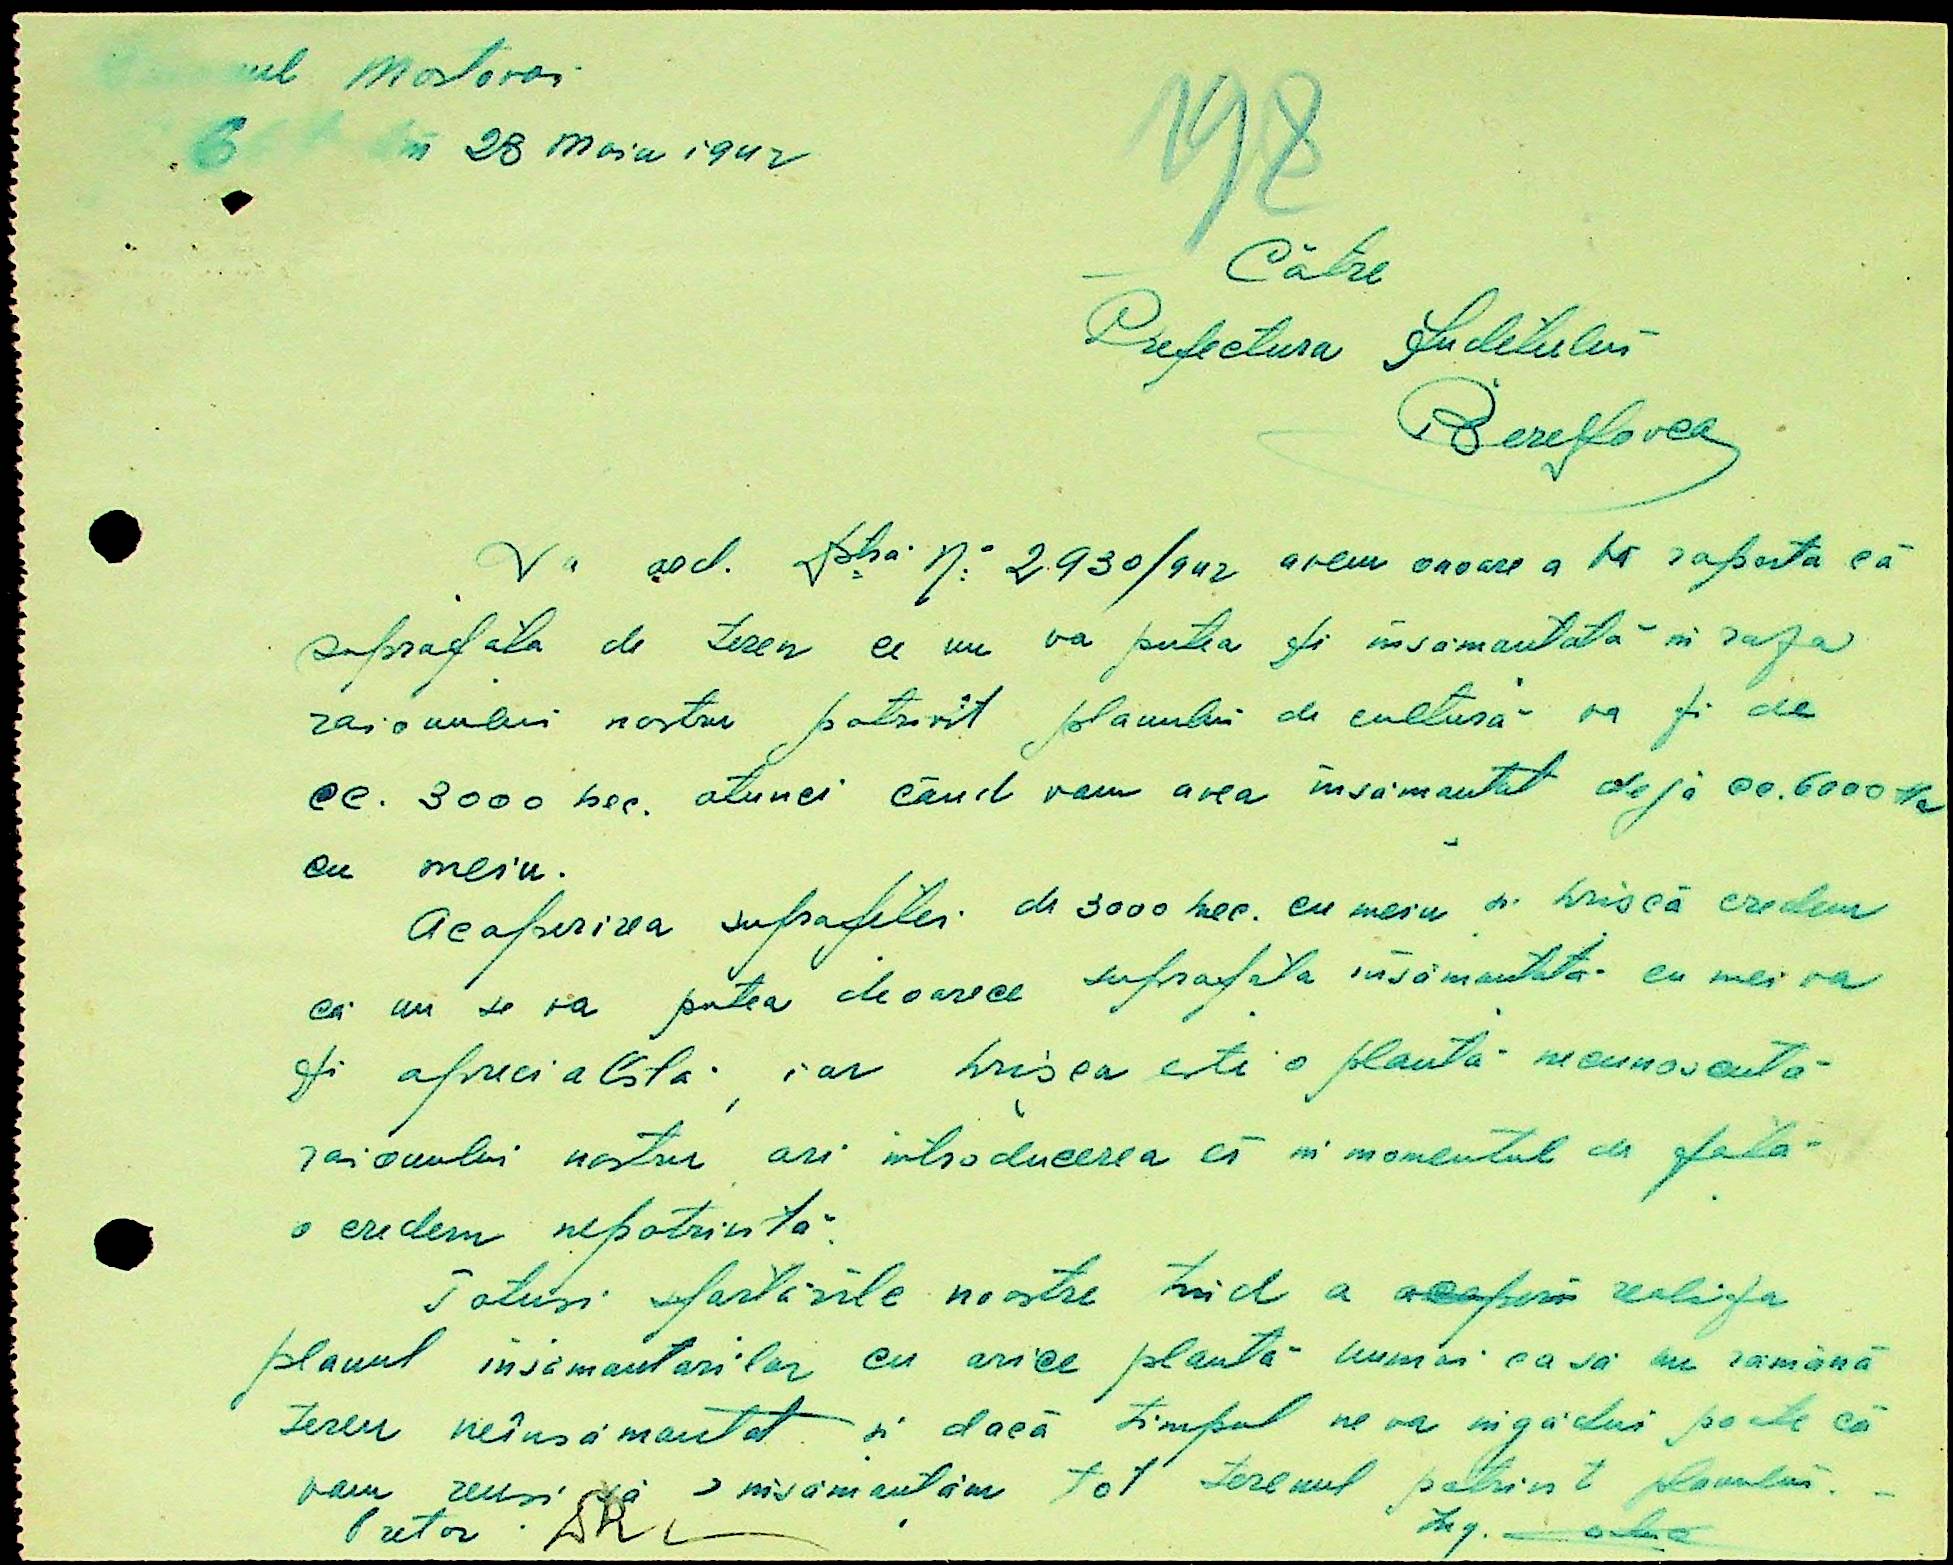 Mostovoi
28 Maiu 1942
198
Către
Prefectura Judetului
Beresovca
La ord. Dtră No 2930/942 avem onoare a vă raporta că
suprafăta de teren ce nu va putea fi însamantată in raza
raionului nostru potrivit planului de cultură va fi de
cc. 3000 hec. atunci când vom avea însamantat deja cc. 6000 Ha
cu meiu.
Acoperirea suprafetei de 3000 hec. cu meiu si hriscă credem
că nu se va putea deoarece suprafăta însămantată cu mei va
fi apreciabilă, iar hrisca este o plantă necunoscută
raionului nostru, ori introducerea ei in momentul de fată
o credem nepotrivită.
Totusi sfortările noastre tind a acoperi realiza
planul însămantarilor cu orice plantă numai ca să nu rămână
teren neînsămantat si dacă timpul ne va îngădui poate că
vom reusi să însămantăm tot terenul potrivit planului. -
Pretor
Ing.